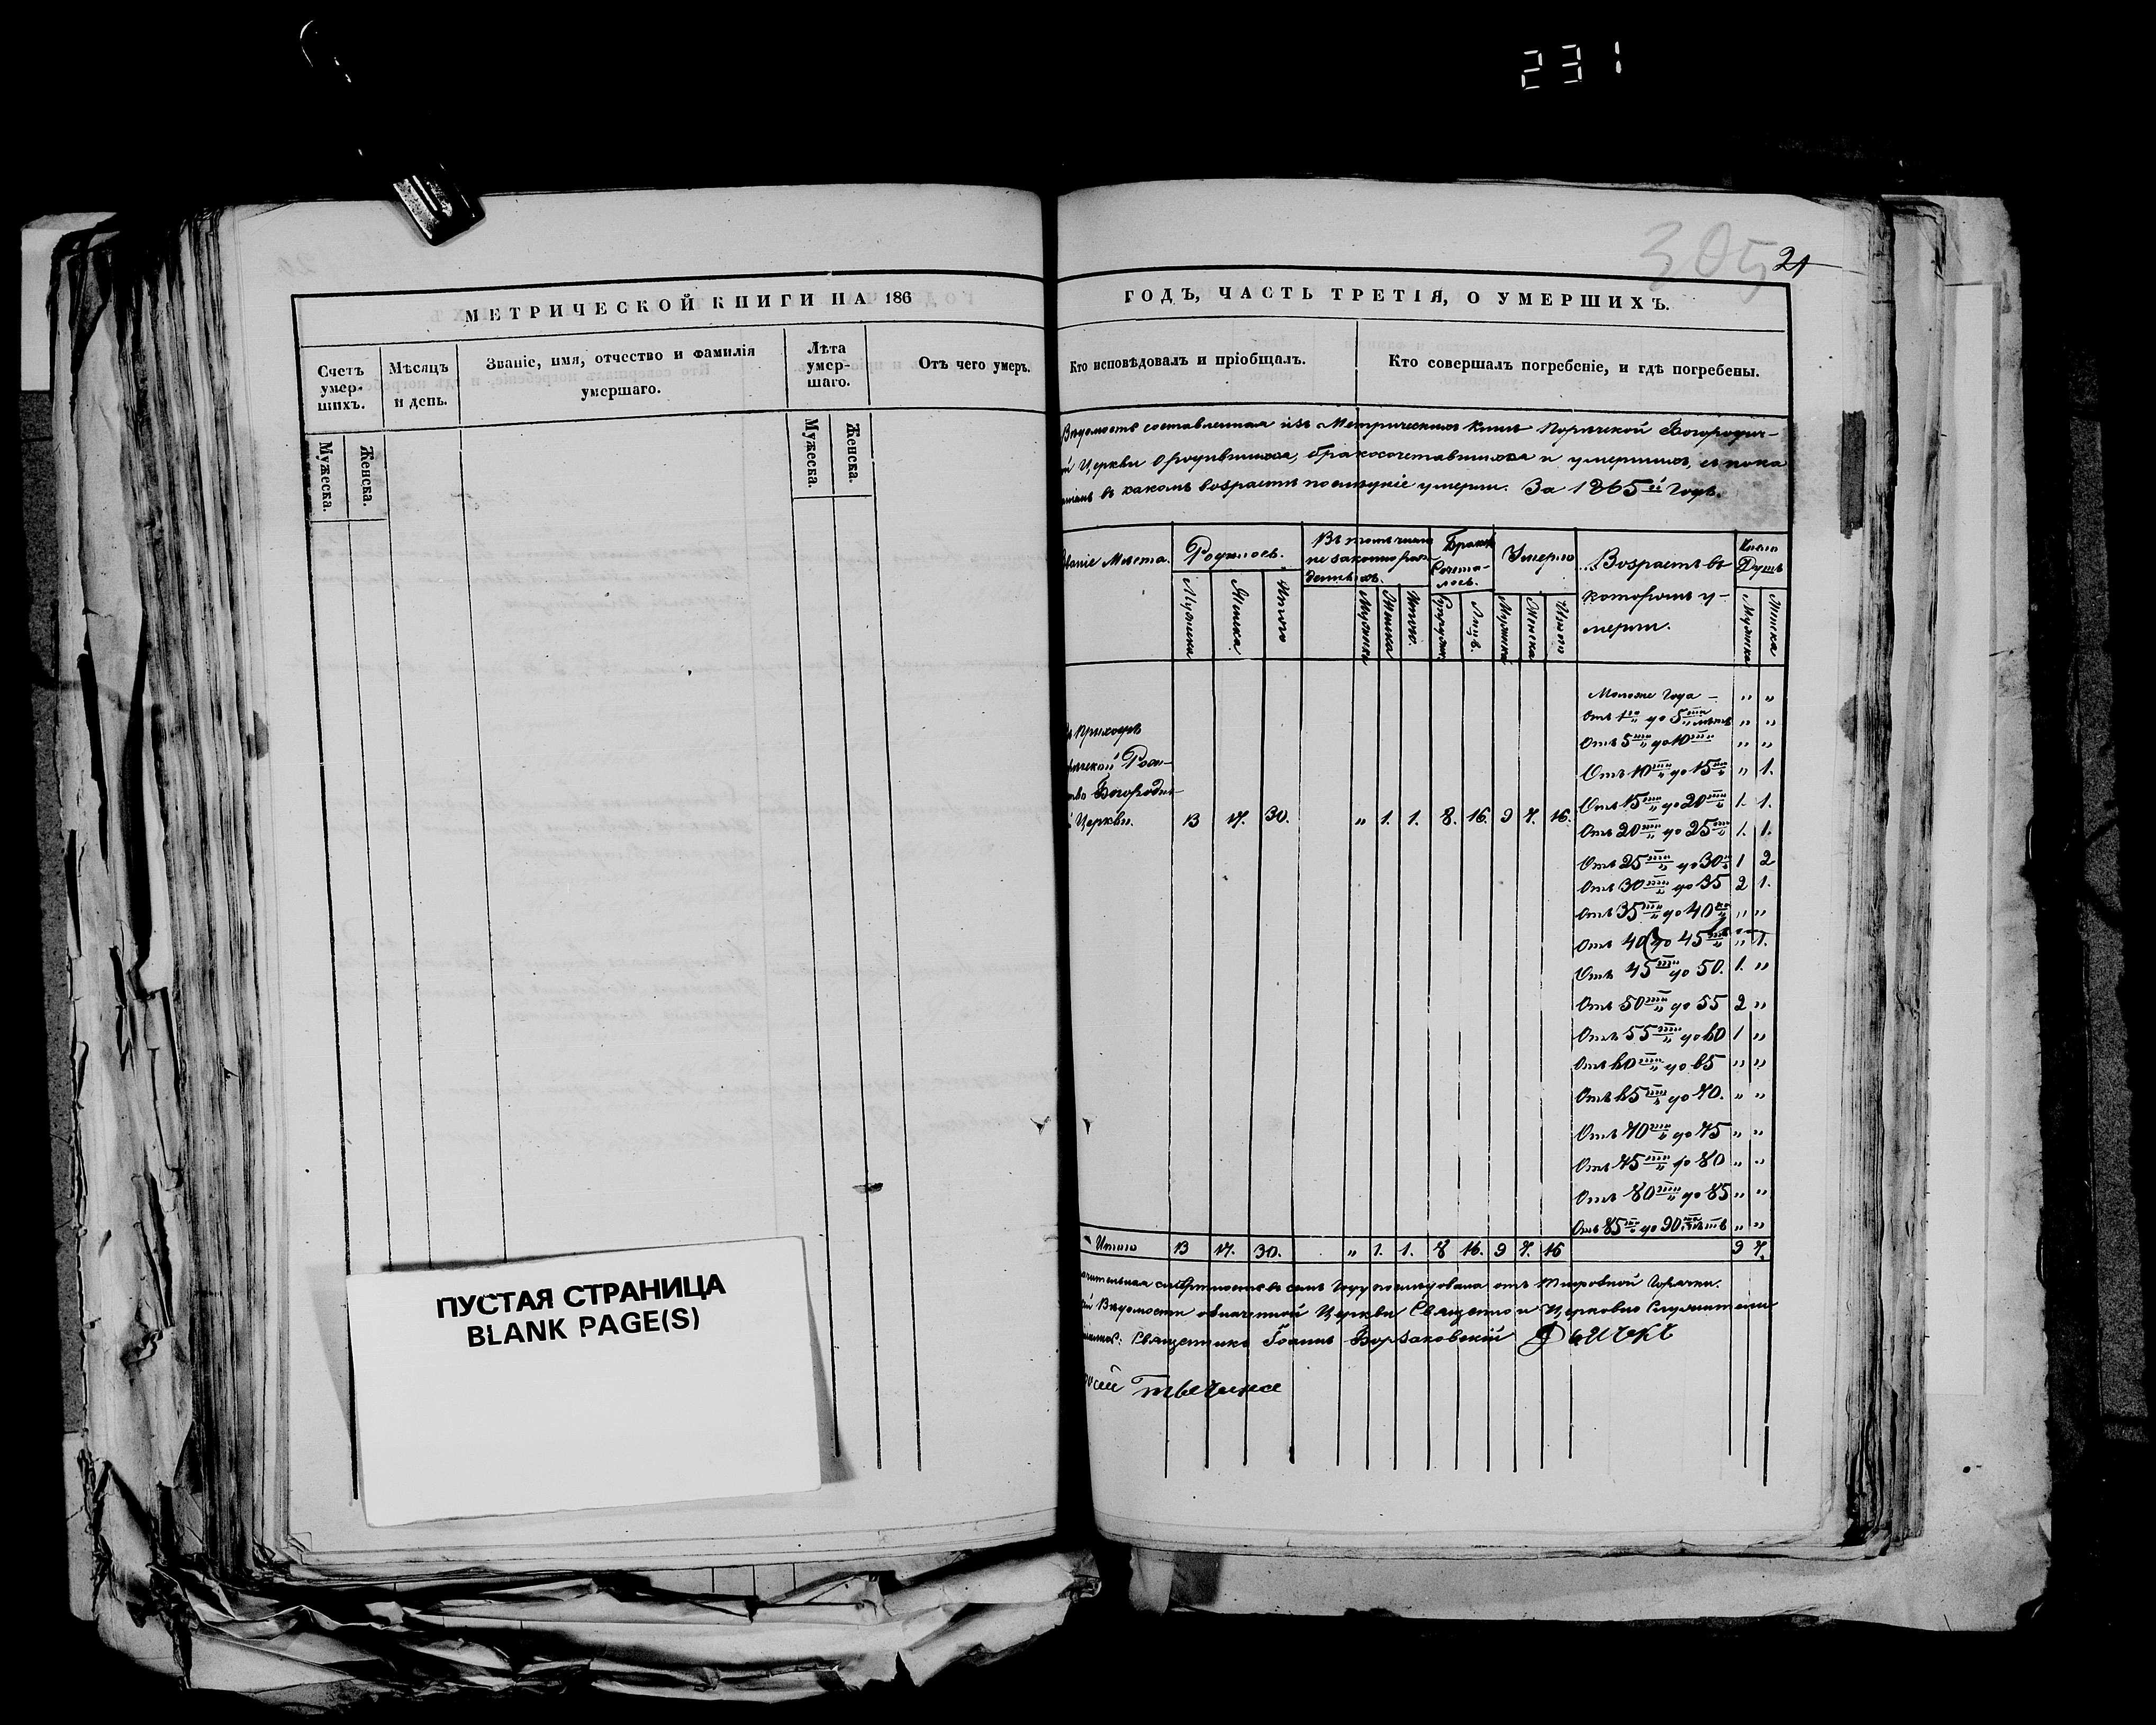 231
305
21
МЕТРИЧЕСКОЙ КНИГИ НА 186
Счетъ умер-
шихъ.
Мѣсяцъ
и день.
Званіе, имя, отчество и фамилія
умершаго.
Лѣта
умер-
шаго.
Отъ чего умеръ.
Мужеска.
Женска.
Мужеска.
Женска.
ПУСТАЯ СТРАНИЦА
BLANK PAGE(S)
ГОДЪ, ЧАСТЬ ТРЕТІЯ, О УМЕРШИХЪ.
Кто исповѣдовалъ и пріобщалъ.
Кто совершалъ погребеніе, и гдѣ погребены.
Вѣдомость составленная изъ Метрическихъ Книгъ Порѣчской Богородич-
Церкви о родившихся, бракосочетавшихся и умершихъ, съ пока
въ какомъ возрастѣ послѣдніе умерли. За 1865й Годъ.
Званіе Мѣста.
Родилось.
Въ томъ числѣ
незаконнорож
денныхъ.
Браковъ
Сочета-
лось.
Умерло
Возрастъ въ
которомъ у-
мерли.
Число
Душъ
Мужеска
Женска
Итого
Мужеска
Женска
Итого.
Лицъ.
Мужеска
Женска
Итого
Мужеска
Женска
Въ Приходѣ
Порѣчской Рож-
Богородич
Церкви.
13 17. 30. " 1. 1. 8. 16. 9 7. 16.
Моложе Года - " "
Отъ 1го до 5ти лѣтъ " "
Отъ 5ти до 10ти " "
Отъ 10ти до 15ти " 1.
Отъ 15ти до 20ти 1. 1.
Отъ 20ти до 25ти 1. 1.
Отъ 25ти до 30ти 1 2
Отъ 30ти до 35 2 1.
Отъ 35ти до 40 " "
Отъ 40 до 45ти " 1.
Отъ 45ти до 50. 1. "
Отъ 50ти до 55 2 "
Отъ 55ти до 60 1 "
Отъ 60ти до 65 " "
Отъ 65ти до 70. " "
Отъ 70ти до 75 " "
Отъ 75ти до 80 " "
Отъ 80ти до 85 " "
Отъ 85ти до 90 лѣтъ " "
Итого 13 17. 30. " 1. 1. 8 16. 9 7. 16 9 7.
смертность въ семъ Году послѣдовала отъ Тифозной Горячки.
Вѣдомости означенной Церкви Священно и Церковно Служители
Священникъ Іоаннъ